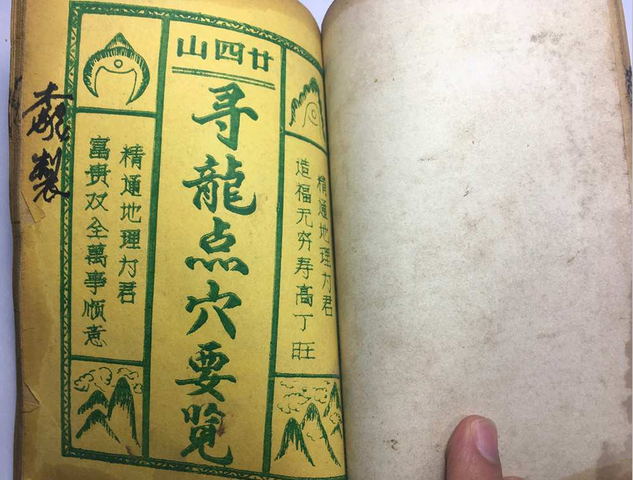 廿四山
寻龍点穴要览
精通地理为君
造福无穷寿高丁旺
精通地理为君
富贵双全萬事顺意
製